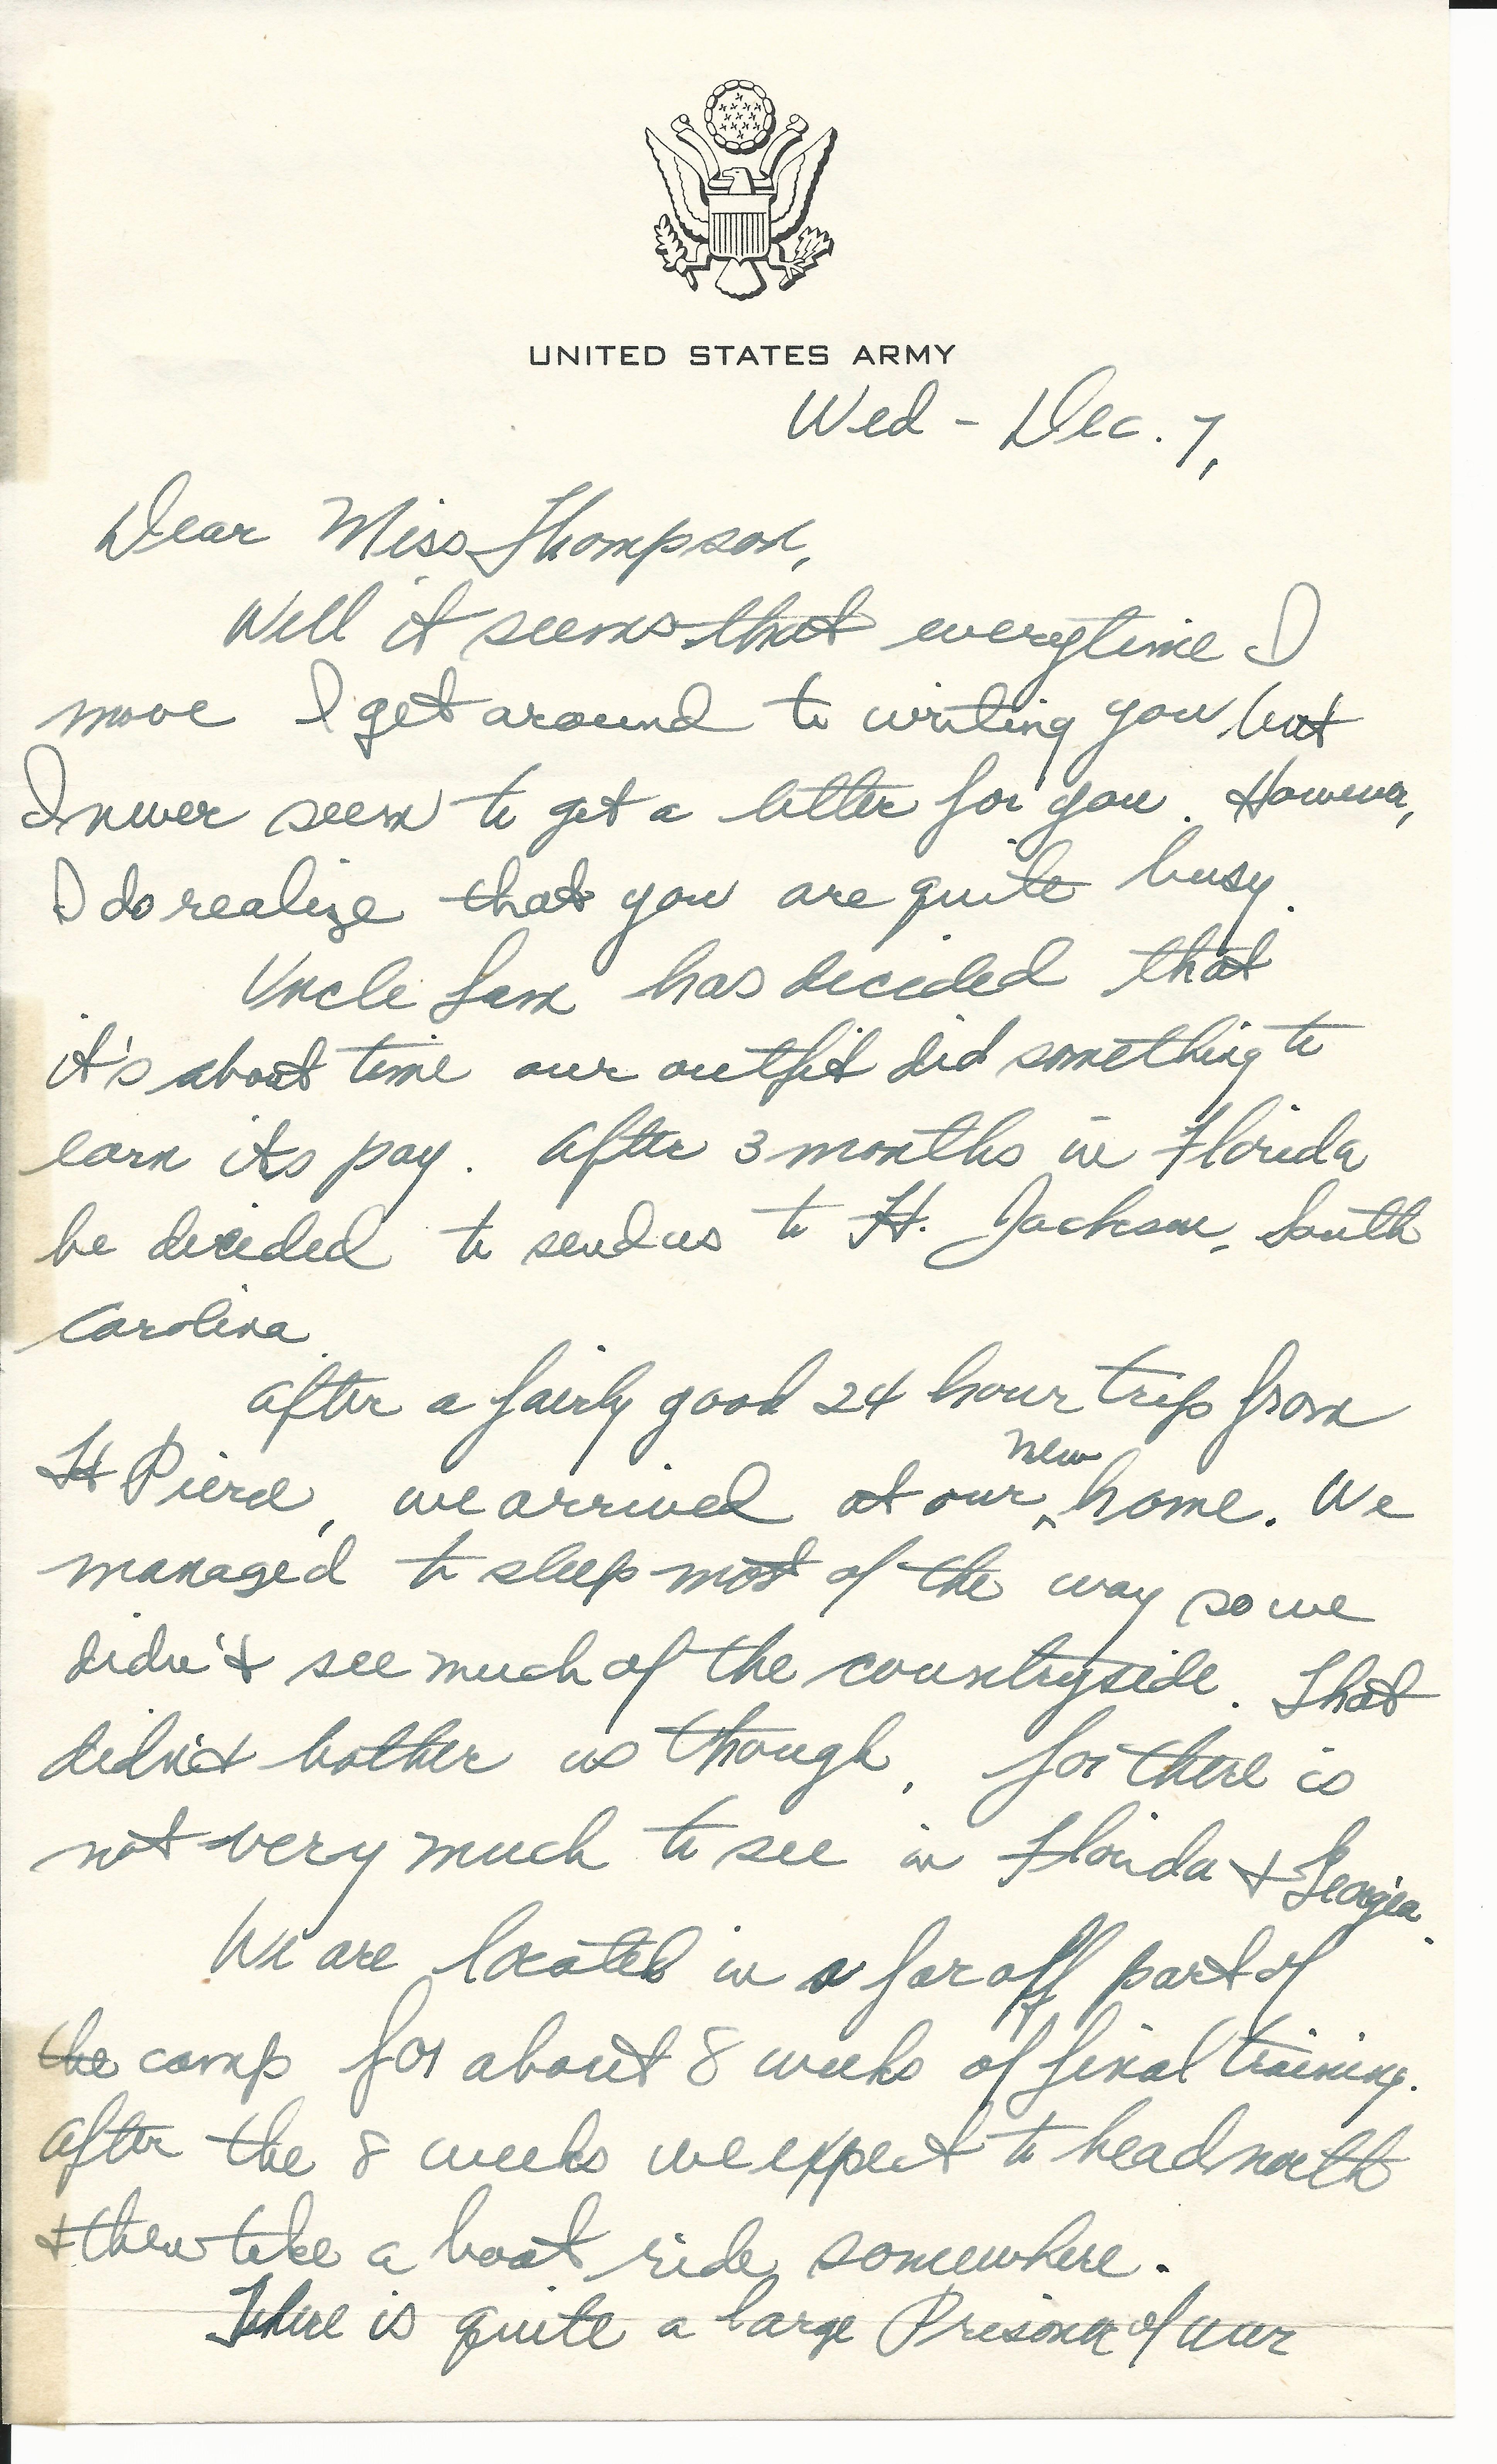 UNITED STATES ARMY
Wed - Dec. 7,
Dear Miss Thompson,
Well it seems that everytime I
move I get around to writing you but
I never seem to get a letter for you. However,
I do realize that you are quite busy.
Uncle Sam has decided that
it's about time our outfit did something to
earn its pay. After 3 months in Florida
he decided to send us to Ft. Jackson, South
Carolina.
After a fairly good 24 hour trip from
Ft Pierce, we arrived at our ^new home. We
managed to sleep most of the way so we
didn't see much of the countryside. That
didn't bother us though, for there is
not very much to see in Florida & Georgia.
We are located in a far off part of
the camp for about 8 weeks of final training.
After the 8 weeks we expect to head north
& then take a boat ride somewhere.
There is quite a large Prisoner of war